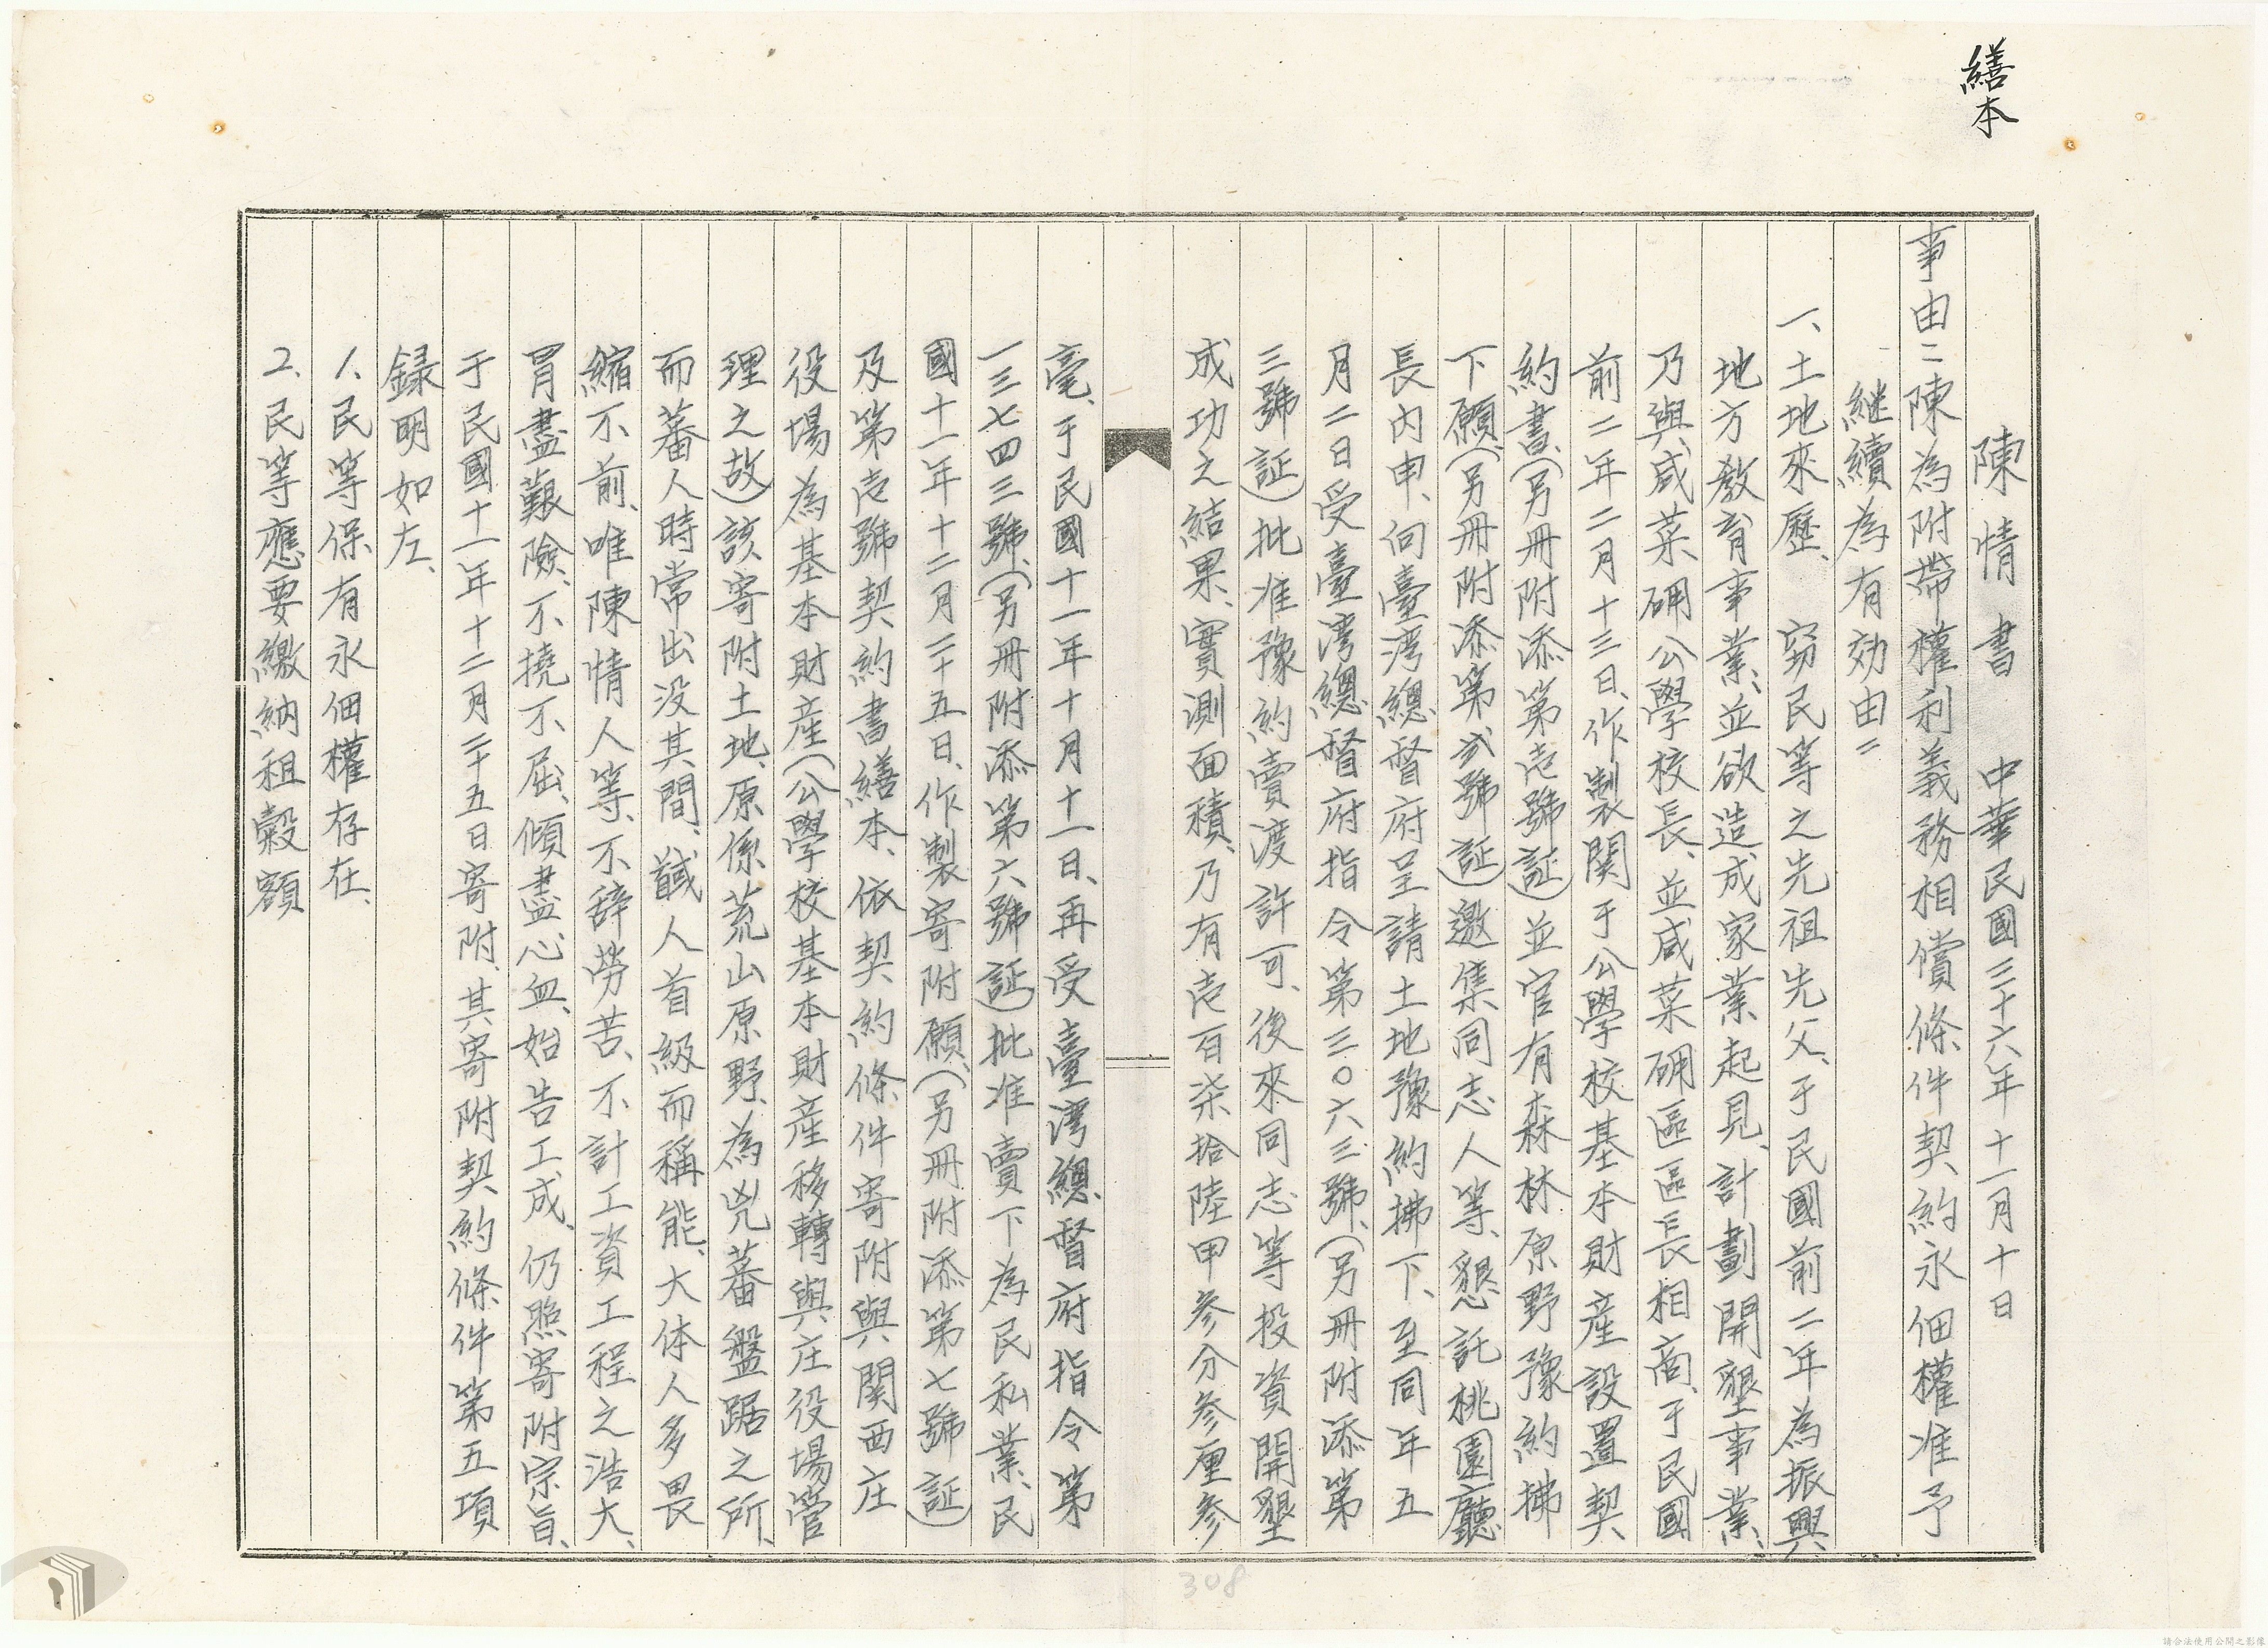 繕本
陳情書　中華民國三十六年十一月十日
事由＝陳為附帶權利義務相償條件契約永佃權准予
継續為有効由＝
一、土地來歷、　窃民等之先祖先父、于民國前二年為振興
地方教育事業、並欲造成家業起見、計劃開墾事業、
乃與咸菜硼公學校長、並咸菜硼區區長相商、于民國
前二年二月十三日、作製関于公學校基本財産設置契
約書、(另冊附添第壱號証)並官有森林原野豫約拂
下願、(另冊附添第弐號証)邀集同志人等、懇託桃園廳
長内申、向臺湾總督府呈請土地豫約拂下、至同年五
月二日受臺湾總督府指令第三〇六三號、(另冊附添第
三號証)批准豫約賣渡許可、後來同志等投資開墾
成功之結果、實測面積、乃有壱百柒拾陸甲参分参厘参
毫、于民國十一年十月十一日、再受臺湾總督府指令第
一三七四三號、(另冊附添第六號証)批准賣下為民私業、民
國十一年十二月二十五日、作製寄附願、(另冊附添第七號証)
及第壱號契約書繕本、依契約條件寄附與関西庄
役場為基本財産(公學校基本財産移轉與庄役場管
理之故)該寄附土地、原係荒山原野、為兇蕃盤踞之所、
而蕃人時常出没其間、馘人首級而稱能、大体人多畏
縮不前、唯陳情人等、不辞勞苦、不計工資工程之浩大、
冒盡艱險、不撓不屈、傾盡心血、始告工成、仍照寄附宗旨、
于民國十一年十二月二十五日寄附、其寄附契約條件第五項
録明如左、
1、民等保有永佃權存在、
2、民等應要繳納租穀額
308
請合法使用公開之影像